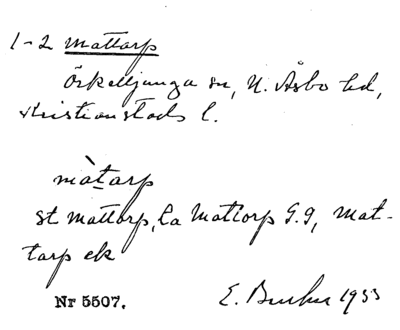 1-2 Mattarp
Örkelljunga sn, N. Åsbo hd,
Kristianstads l.
màtarp
st mattarp, la Mattorp G.9, Mat-
tarp ek
Nr 5507. E. 1933